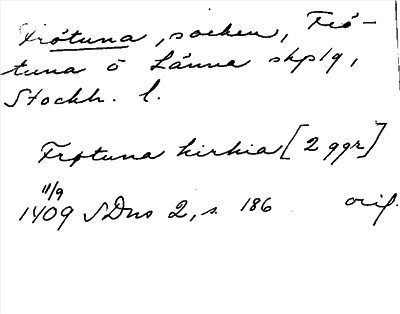 Frötuna, socken, Frö-
tuna o Länna skplg,
Stockh. l.
Frøtuna kirkia [2 ggr]
11/9
1409 SDns 2, s. 186 orig.